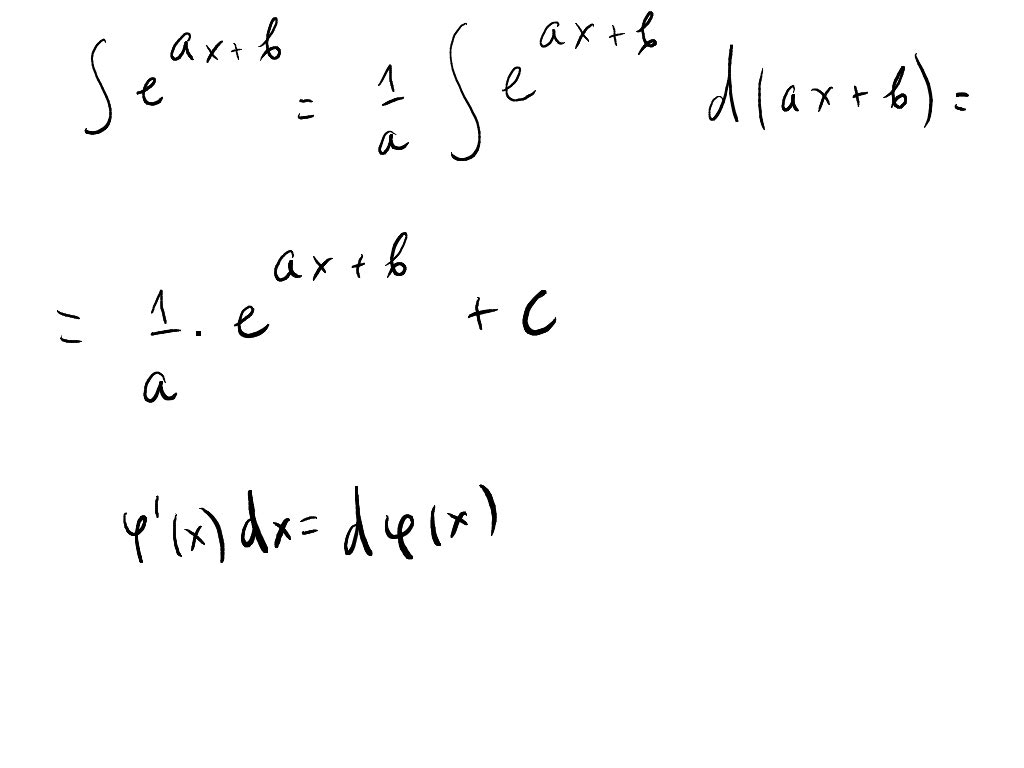 ∫ e^{ax+b} = \frac{1}{a} ∫ e^{ax+b} d(ax+b) =
= \frac{1}{a} · e^{ax+b} + C
φ'(x)dx = dφ(x)